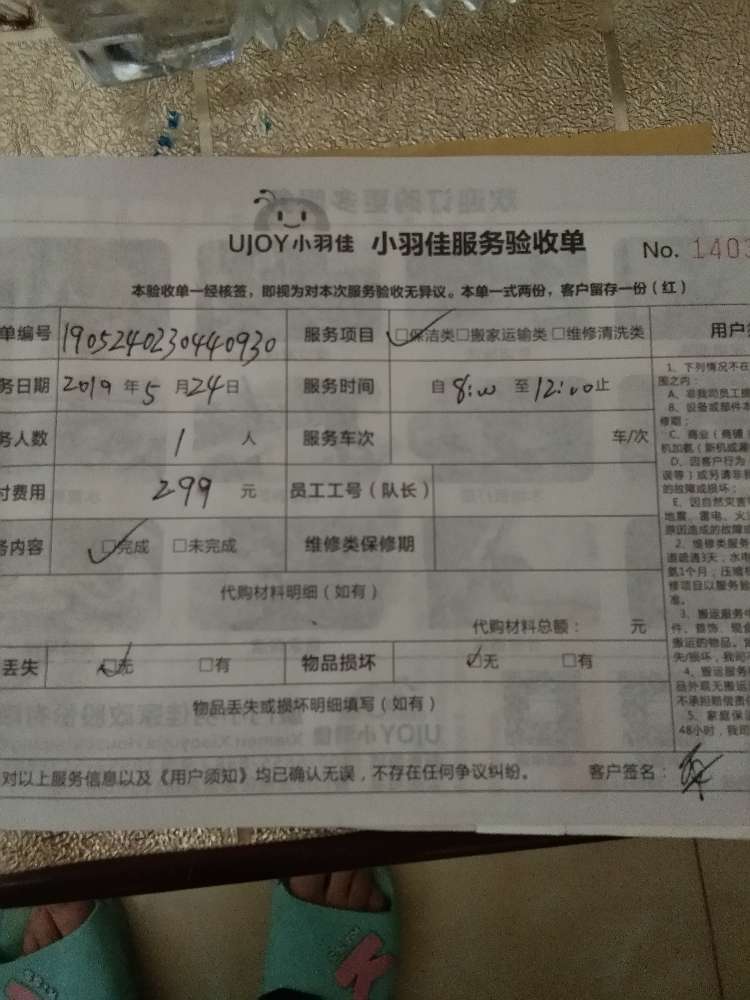 UJOY小羽佳 小羽佳服务验收单 No. 1403
本验收单一经核签，即视为对本次服务验收无异议。本单一式两份，客户留存一份（红）
单编号 1905240230440930 服务项目 ☑保洁类□搬家运输类□维修清洗类 用户
务日期 2019年5月24日 服务时间 自8:00至12:00止
务人数 1人 服务车次 车/次
付费用 299元 员工工号（队长）
务内容 ☑完成 □未完成 维修类保修期
代购材料明细（如有）
代购材料总额： 元
丢失 ☑无 □有 物品损坏 ☑无 □有
物品丢失或损坏明细填写（如有）
对以上服务信息以及《用户须知》均已确认无误，不存在任何争议纠纷。 客户签名：
1、下列情况不在
围之内：
A、非我司员工
B、设备或部件本
修期；
C、商业（商铺
机加氨（新机或漏
D、因客户行为
误等）或另请非
的故障或损坏；
E、因自然灾害
地震、雷电、火
原因造成的故障或
2、维修类服务
道疏通3天，水电
氨1个月，压缩
修项目以服务验
准。
3、搬运服务中
件、首饰、现金
搬运的物品。
失/损坏，我司不
4、搬运服务
品外观无搬运
不承担赔偿责任
5、家庭保洁
48小时，我司